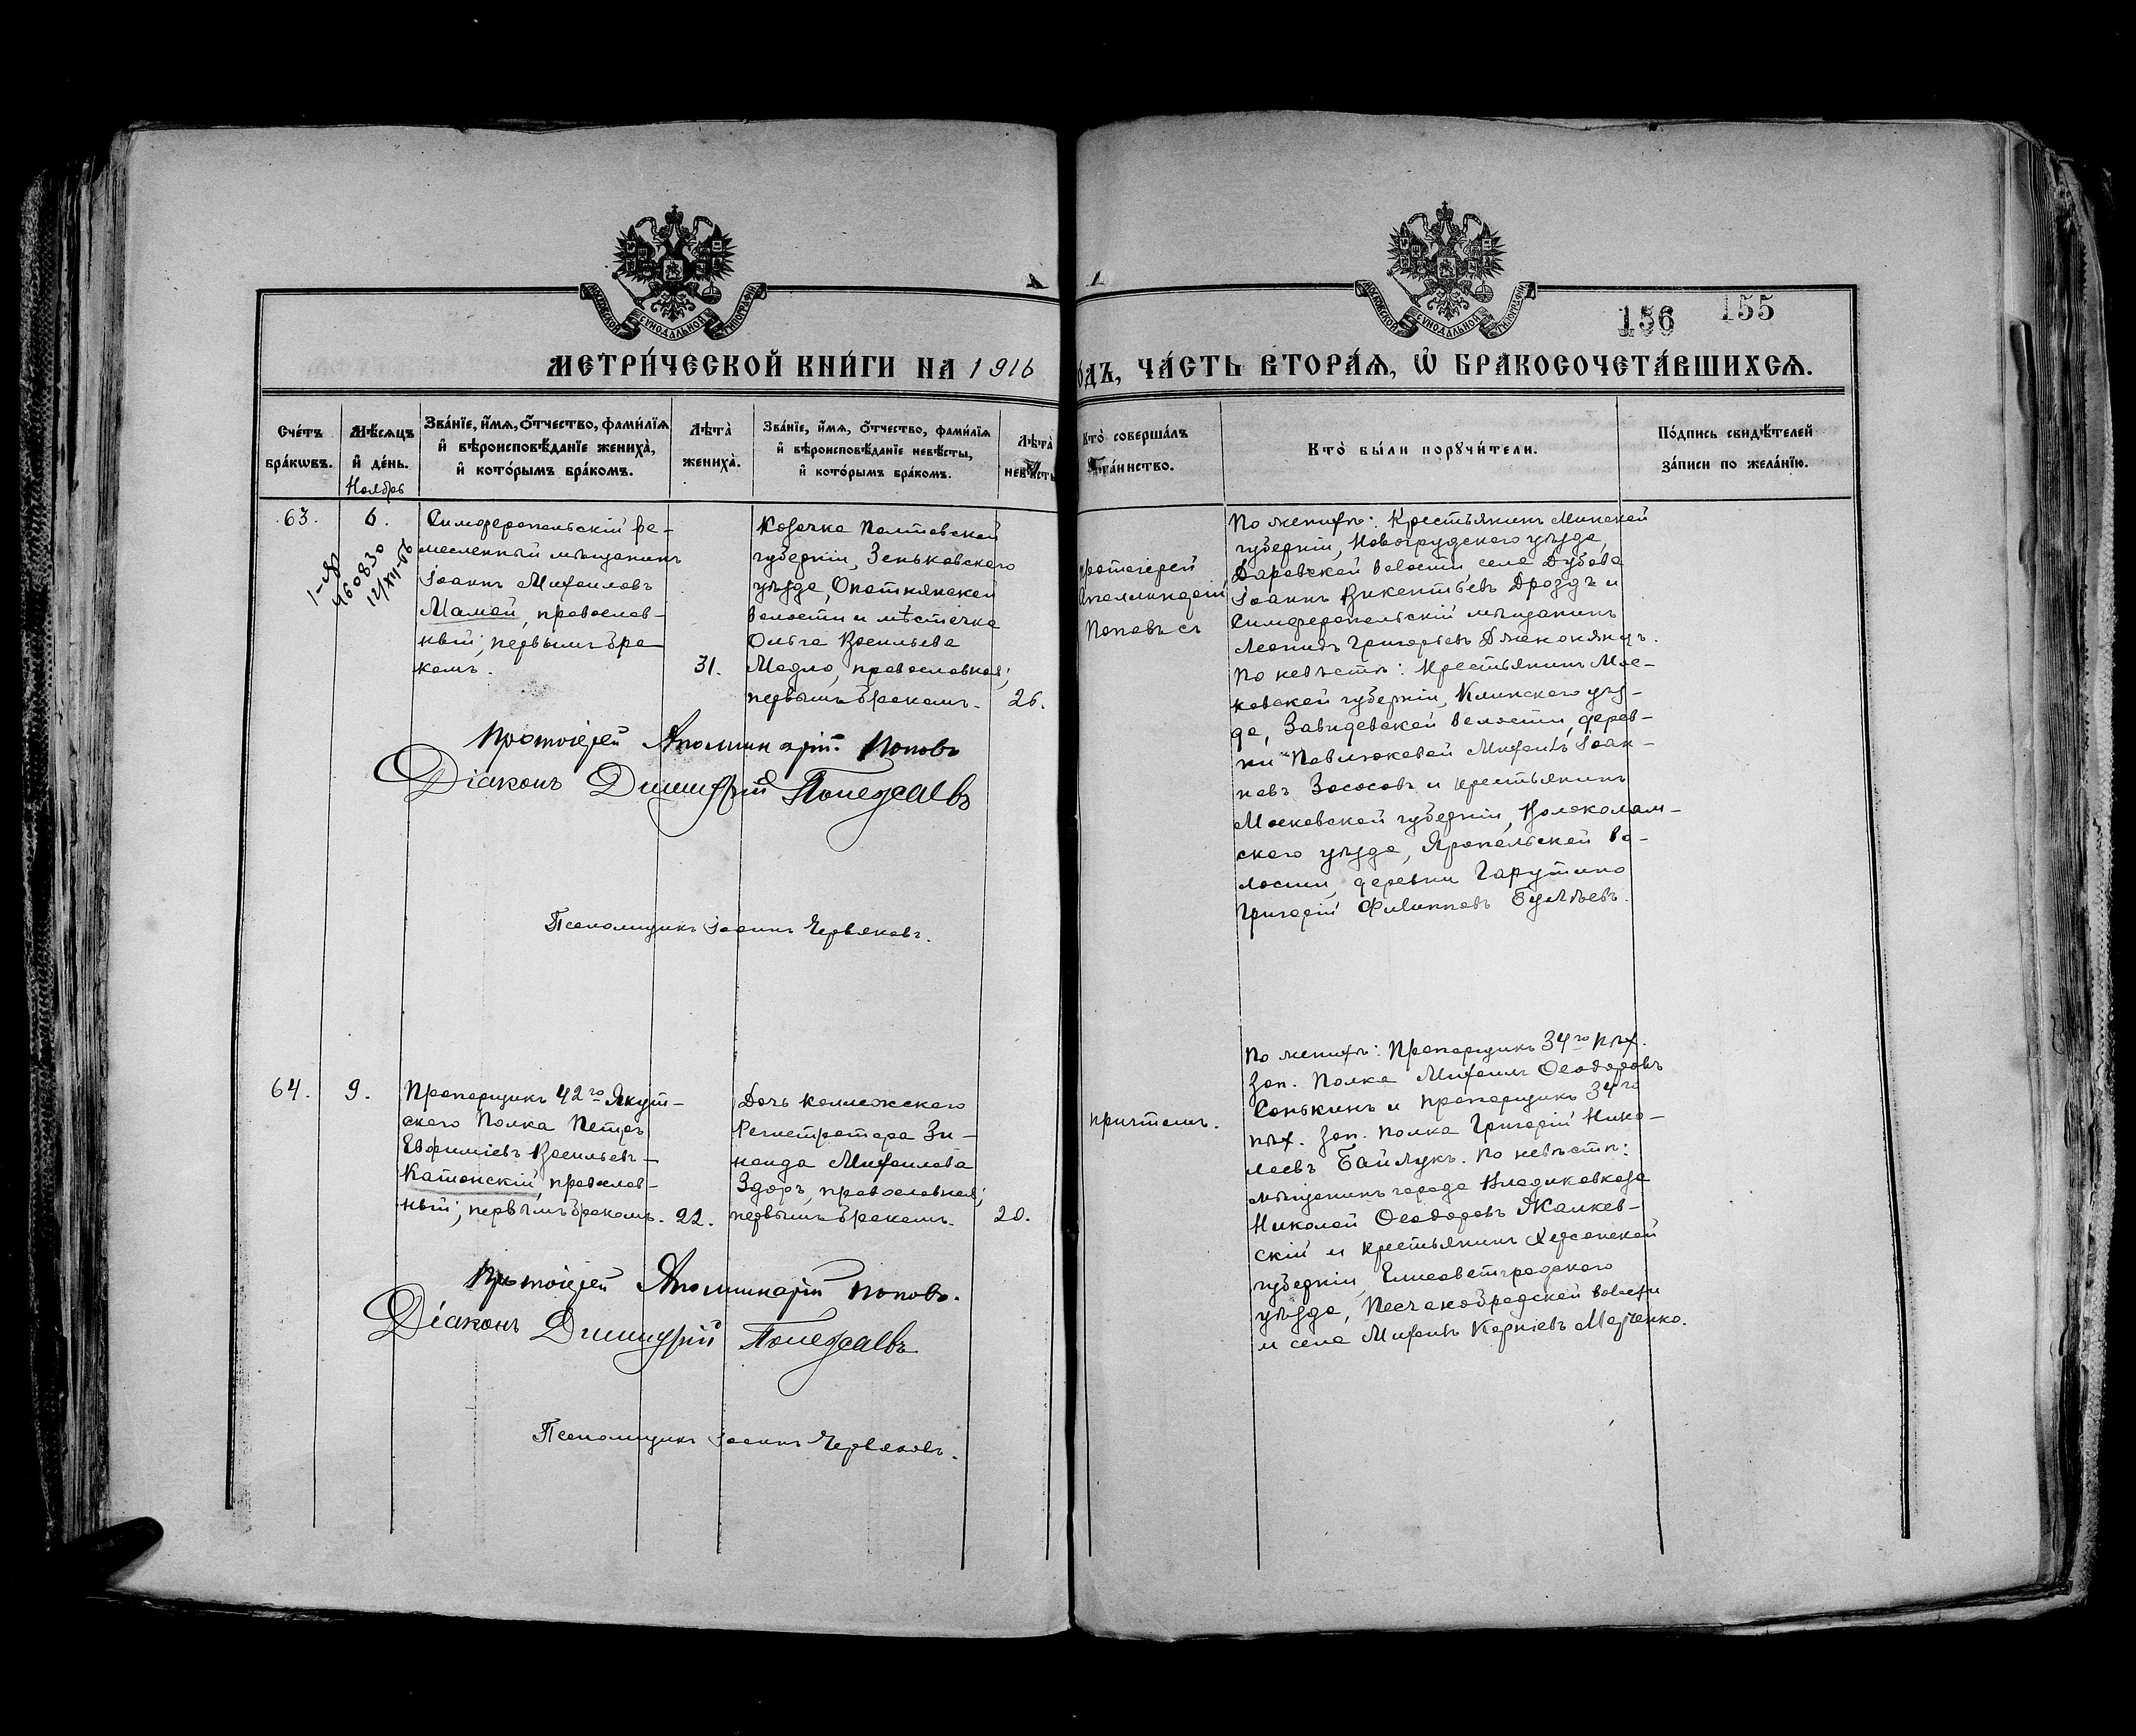 156 155
МЕТРИ́ЧЕСКОЙ КНИ́ГИ НА 1916
ДЪ, ЧА́СТЬ ВТОРА́Ѧ, Ѿ БРАКОСОЧЕТА́ВШИХСѦ.
Сче́тъ бра́кѡвъ.
Мѣ́сѧцъ и҆ де́нь.
Ноябрь
Зва́нїе, и҆́мѧ, ѻ҆́тчество, фами́лїѧ
и҆ вѣроисповѣ́данїе женихà,
и҆ кото́рымъ бра́комъ.
Лѣтà женихà.
Зва́нїе, и҆́мѧ, ѻ҆́тчество, фами́лїѧ
и҆ вѣроисповѣ́данїе невѣ́сты,
и҆ кото́рымъ бра́комъ.
Лѣтà невѣ́сты
Кто̀ соверша́лъ
та́инство.
Кто̀ бы́ли порꙋчи́тели.
По́дпись свидѣ́телей
за́писи по жела́нїю.
63.
6.
460830
12/XII-
Симферопольскій ре-
месленный мѣщанинъ
Іоаннъ Михаиловъ
Мамай, православ-
ный; первымъ бра-
комъ.
31.
Козачка Полтавской
губерніи, Зеньковскаго
уѣзда, Опошнянской
волости и мѣстечка
Ольга Васильева
Мадло, православная;
первымъ бракомъ.
26.
Протоіерей
Аполлинарій
Поповъ съ
По женихѣ: Крестьянинъ Минской
губерніи, Новогрудскаго уѣзда,
Даревской волости села Дубова
Іоаннъ Викентьевъ Дроздъ и
Симферопольскій мѣщанинъ
Леонидъ Григорьевъ
По невѣстѣ: Крестьянинъ Мос-
ковской губерніи, Клинскаго уѣз-
да, Завидовской волости, дерев-
ни Павлюковой Михаилъ Іоан-
новъ Зососовъ и крестьянинъ
Московской губерніи, Волоколам-
скаго уѣзда, Яропольской во-
лости, деревни Гарутино
Григорій Филипповъ
Протоіерей Аполлинарій Поповъ
Діаконъ Димитрій Полежаевъ
Псаломщикъ Іоаннъ Червяковъ.
64.
9.
Прапорщикъ 42го Якут-
скаго Полка Петръ
Евфиміевъ Васильевъ-
Катонскій, православ-
ный; первымъ бракомъ.
22.
Дочь коллежскаго
Регистратора Зи-
наида Михаилова
Здоръ, православная;
первымъ бракомъ.
20.
причтомъ.
По женихѣ: Прапорщикъ 34го пѣх.
Зап. Полка Михаилъ Ѳеодоровъ
Сонькинъ и прапорщикъ 34го
пѣх. Зап. Полка Григорій Нико-
лаевъ Байлукъ. По невѣстѣ:
мѣщанинъ города Владикавказа
Николай Ѳеодоровъ Жалкев-
скій и крестьянинъ Херсонской
губерніи, Елисаветградскаго
уѣзда, Песчанобродской волости
и села Михаилъ Корніевъ Марченко.
Протоіерей Аполлинарій Поповъ.
Діаконъ Димитрій Полежаевъ
Псаломщикъ Іоаннъ Червяковъ.